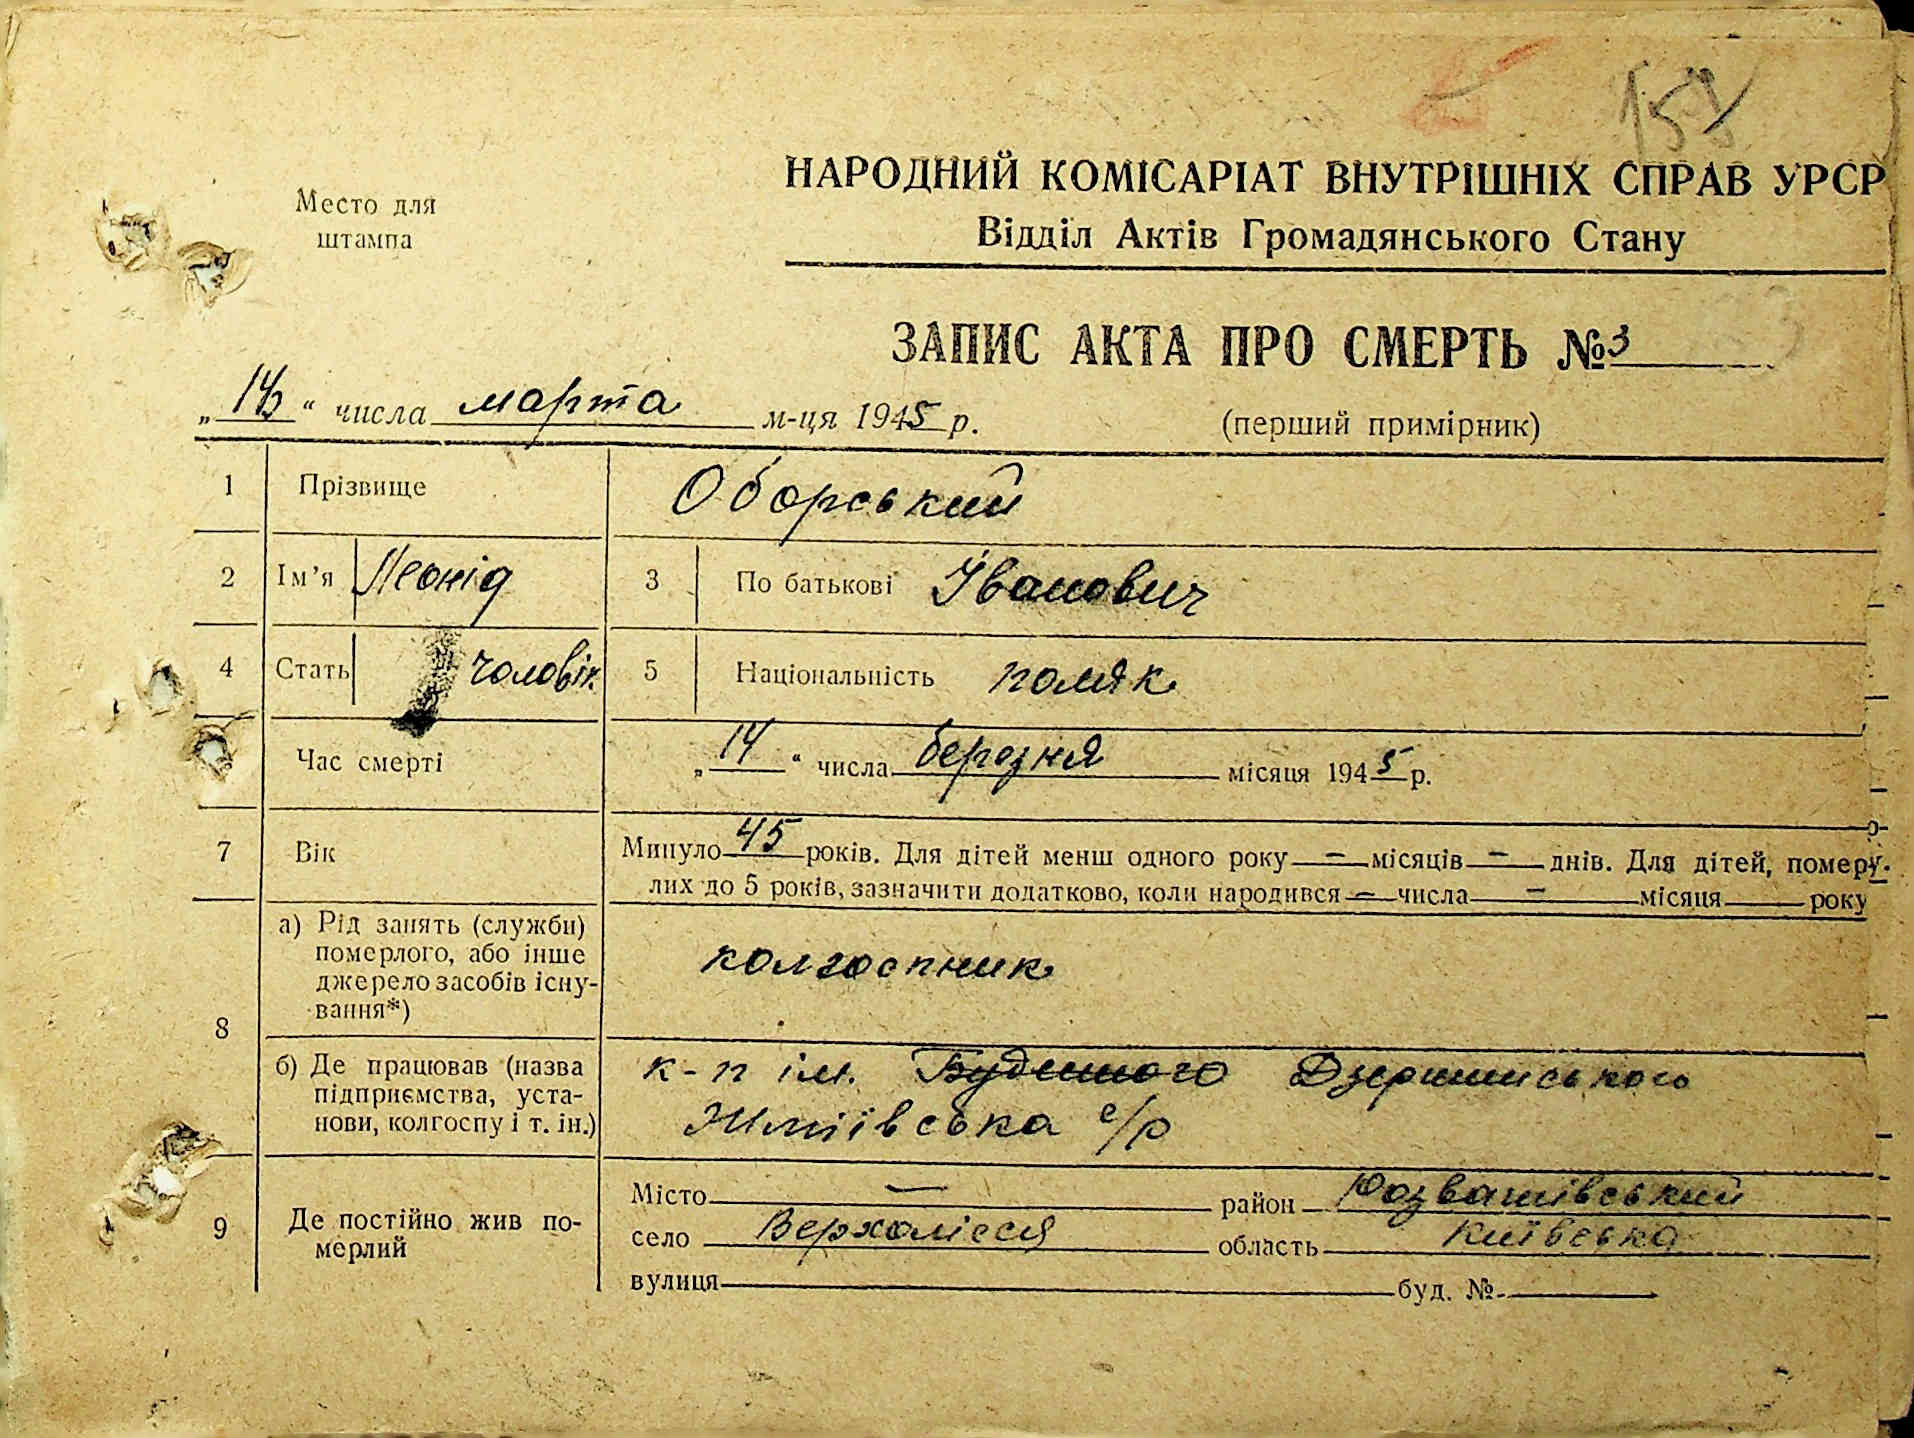 Место для
штампа
НАРОДНИЙ КОМІСАРІАТ ВНУТРІШНІХ СПРАВ УРСР
Відділ Актів Громадянського Стану
ЗАПИС АКТА ПРО СМЕРТЬ № 3
„ “ числа марта м-ця 1945 р.
(перший примірник)
1 Прізвище Оборський
2 Ім’я Леонід 3 По батькові Іванович
4 Стать чоловік 5 Національність поляк
Час смерті „14“ числа березня місяця 1945 р.
7 Вік Минуло 45 років. Для дітей менш одного року — місяців — днів. Для дітей, помер-
лих до 5 років, зазначити додатково, коли народився — числа — місяця року
8 а) Рід занять (служби)
померлого, або інше
джерело засобів існу-
вання*)
колгоспник
б) Де працював (назва
підприємства, уста-
нови, колгоспу і т. ін.)
к-п ім. Буденного Дзержинського
с/р
9 Де постійно жив по-
мерлий
Місто — район Розважівський
село Верхолісся область Київська
вулиця буд. №